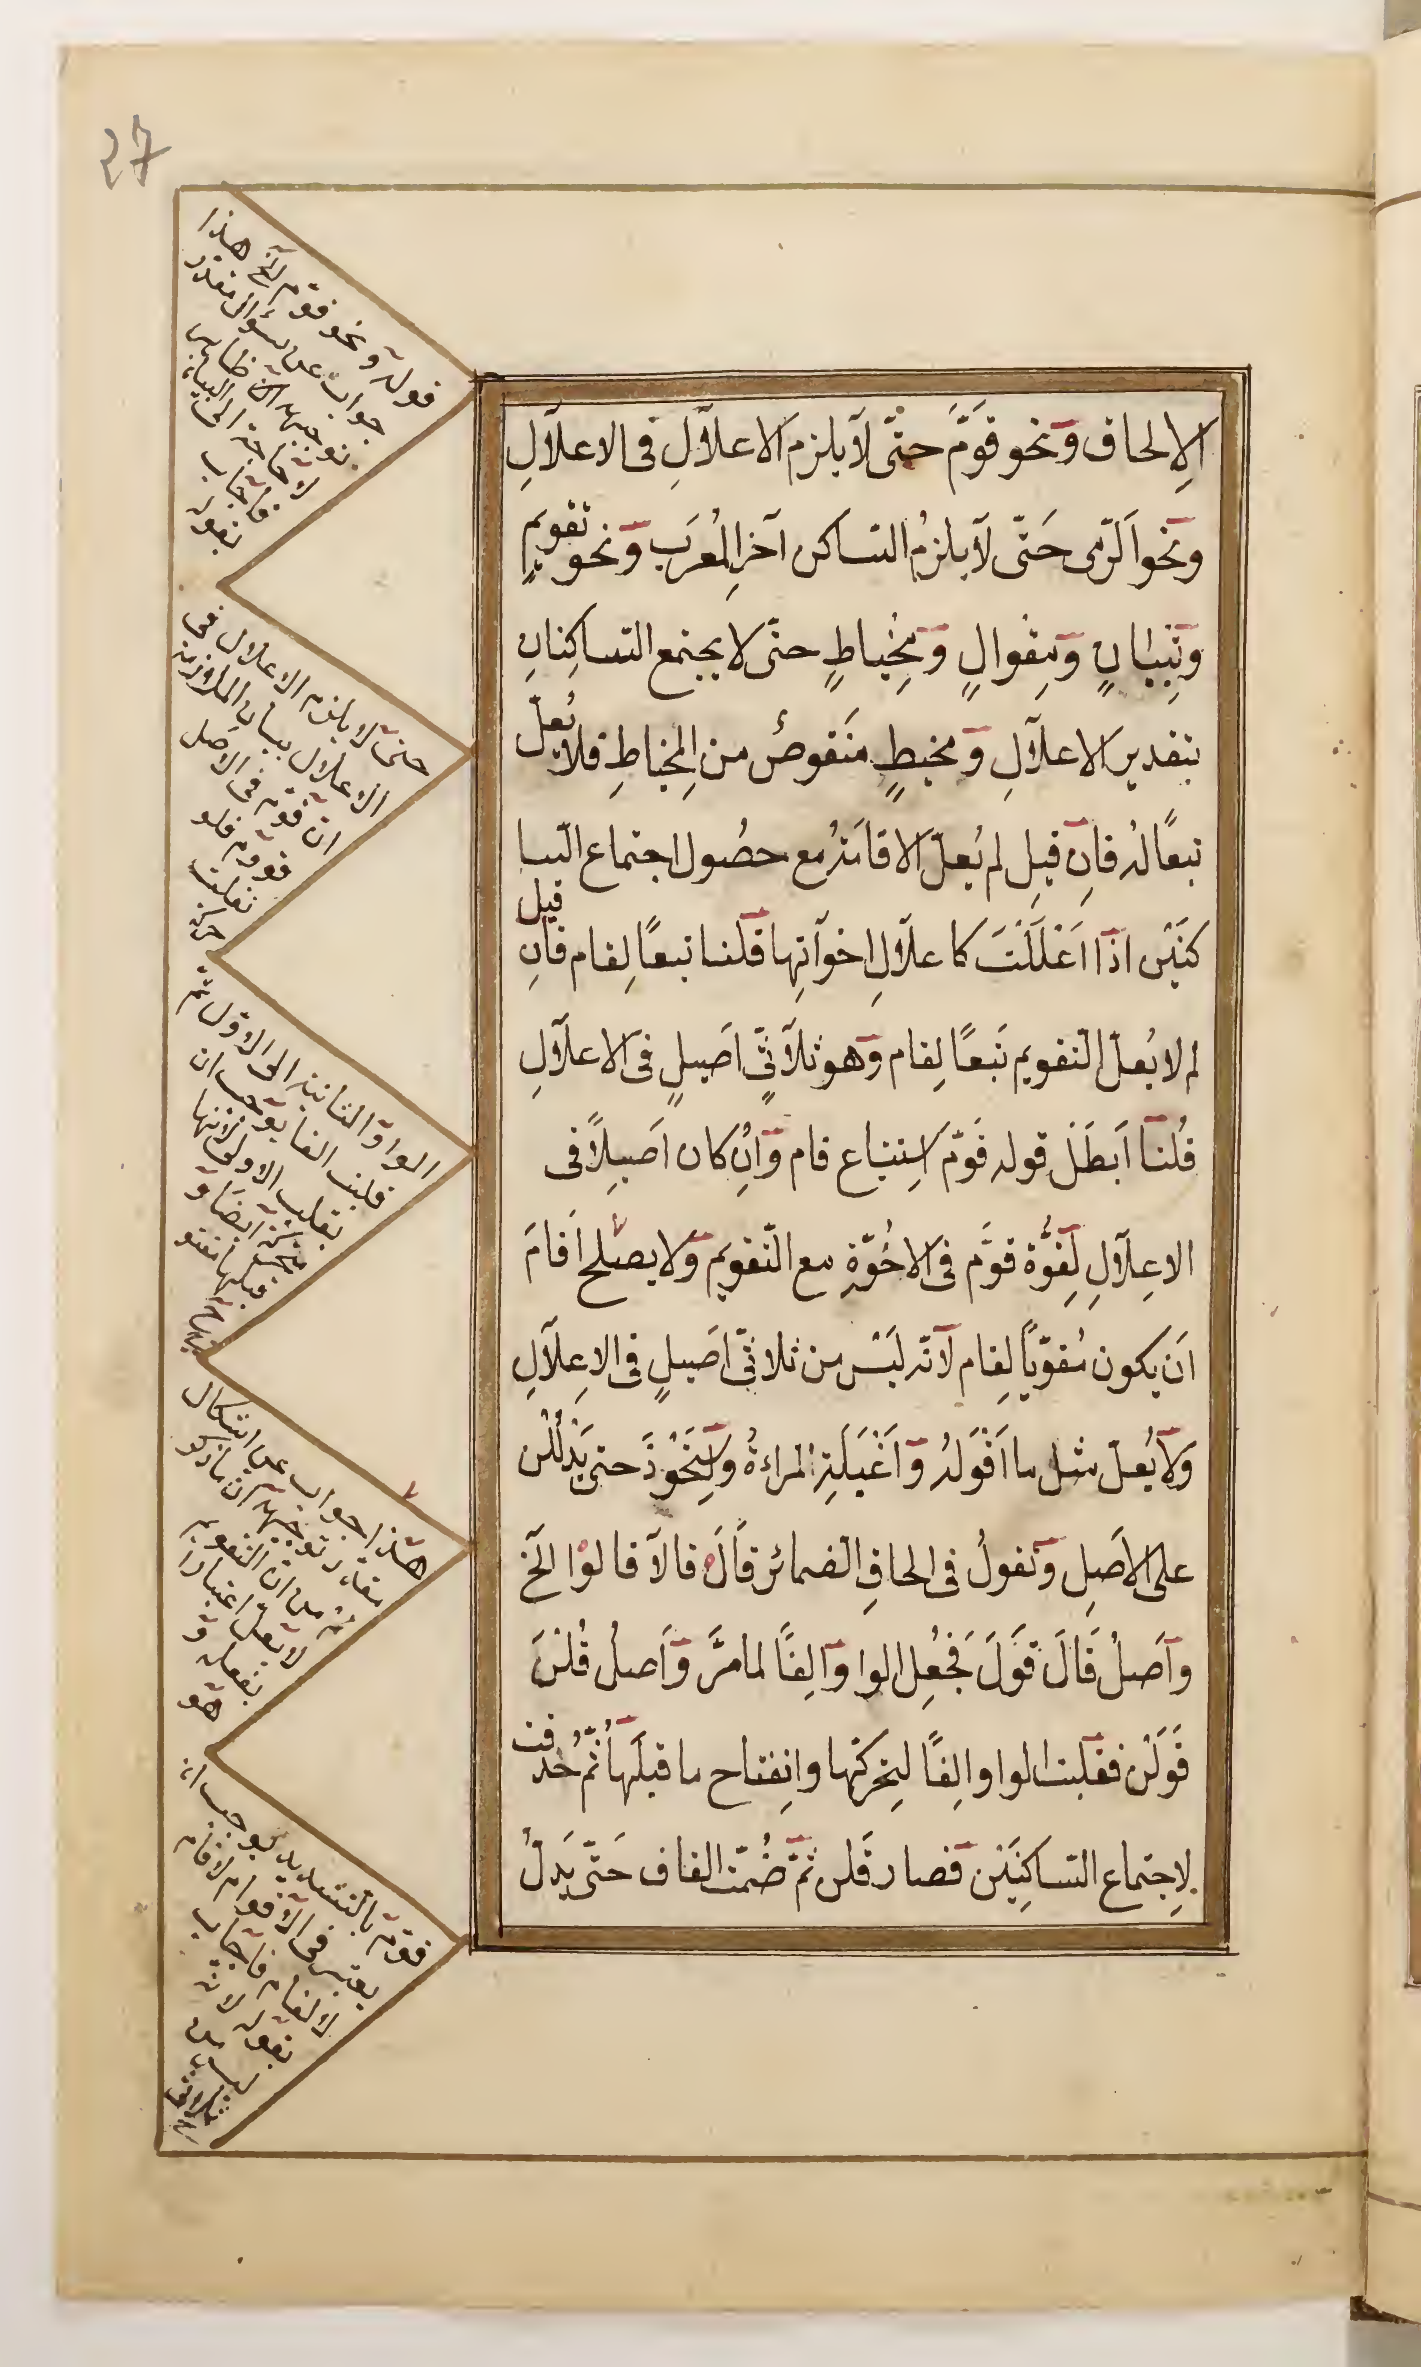 27
الاِلحاق وَنحو قَوَّمَ حتّى لاَ يلزم الاعلاَلِ فى الاعلاَلِ
وَنحو الرَّمى حَتّى لاَ يلزمُ السّاكن آخرِ المُعرَب وَنحو تقويمٍ
وَتِبيانٍ وَمِقوالٍ وَمِخياطٍ حتّى لا يجتمع السّاكِنانِ
بتقدير الاعلاَلِ وَمخيطٍ مَنقوصٌ من المِخياطِ فلا يُعلّ
تبعًا له فاِن قيلِ لم يُعلّ الاقامَةُ مع حصُول اجتماع السّا
كنَيْن اذَا اَعْلَلْتَ كاعلاَلِ اخوَاتِها قلنا تبعًا لِقام فاَن قيل
لم لا يُعلّ التّقويم تَبعًا لِقام وَهو ثلاَثىّ اَصيلٍ فى الاعلاَلِ
قُلنَا اَبطَلَ قوله قَوّمَ اَسِتتباع قام وَاِن كان اَصيلاً فى
الاِعلاَلِ لِقُوَّة قوَّم فى الاخُوّةِ مع التّقويم وَلا يصلح اَقامَ
اَن يكون مُقوّيًا لِقام لاَنّه لَيْس من ثلاثىّ اَصيلٍ فى الاِعلاَلِ
وَلاَ يُعلّ مثل ما اَقْوَلَهُ وَاَغْيَلَتِ المراءةُ وَاستَحْوذَ حتى يَدْلُلْن
على الاَصلِ وَتقولُ فى الحاقِ الضمائر قَالَ قالاَ قالوْا الَخ
وَاَصلُ قَالَ قَوَلَ فَجُعِل الواوَ اَلِفًا لما مرَّ وَاَصلُ قُلْنَ
قَوَلْن فقلبت الواو اَلِفًا لتِحركّها وانِفتاح ما قبلَها ثُمّ حُذفت
لاِجتماع السّاكِنَيْن فصار قَلن ثمّ ضُمّت القاف حَتّى يَدلّ
قوله وَنحو قوّم الخ هذا
جواب عن سؤال مقدّر
توجيهه انّ ظاهر
لا حاجة الى البيان
فاَجاب
بقوله
حتىّ لا يلزم الاعلال فى
الاعلال بيان الملازمة
انّ قوّم فى الاَصل
قووم فلو
نقلت
حركة
الواو الثانية الى الاوّل ثم
قلبت الفا يوجب ان
يقلب الاولى لانّها
متحركة ايضا وَ
قبلها مفتو
حة
هذا جواب عن اشكال
مقدّر توجيهه ان ما ذكر
تم من انّ التقويم
لا يعلّ اعتبارا
بفعله وَ
هو
قوّم بالتشديد يوجب ان
يعتبر فى الاقوام لاقام
لا لقام فاَجاب
بقوله لانّه
ليس من